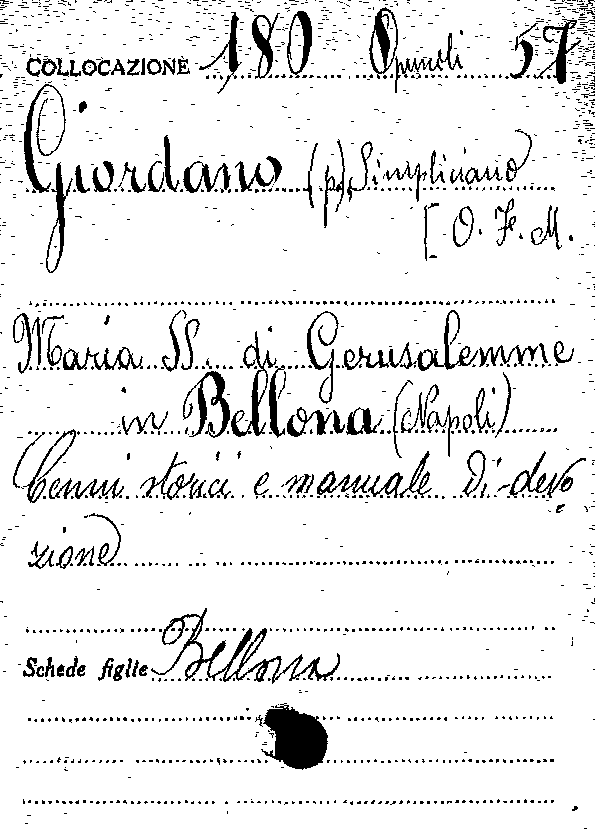 COLLOCAZIONE 180 Opuscoli 57
Giordano (p) Simpliciano
[O. F. M.
Maria SS. di Gerusalemme
in Bellona (Napoli)
Cenni storici e manuale di devo
zione
Schede figlie Bellona